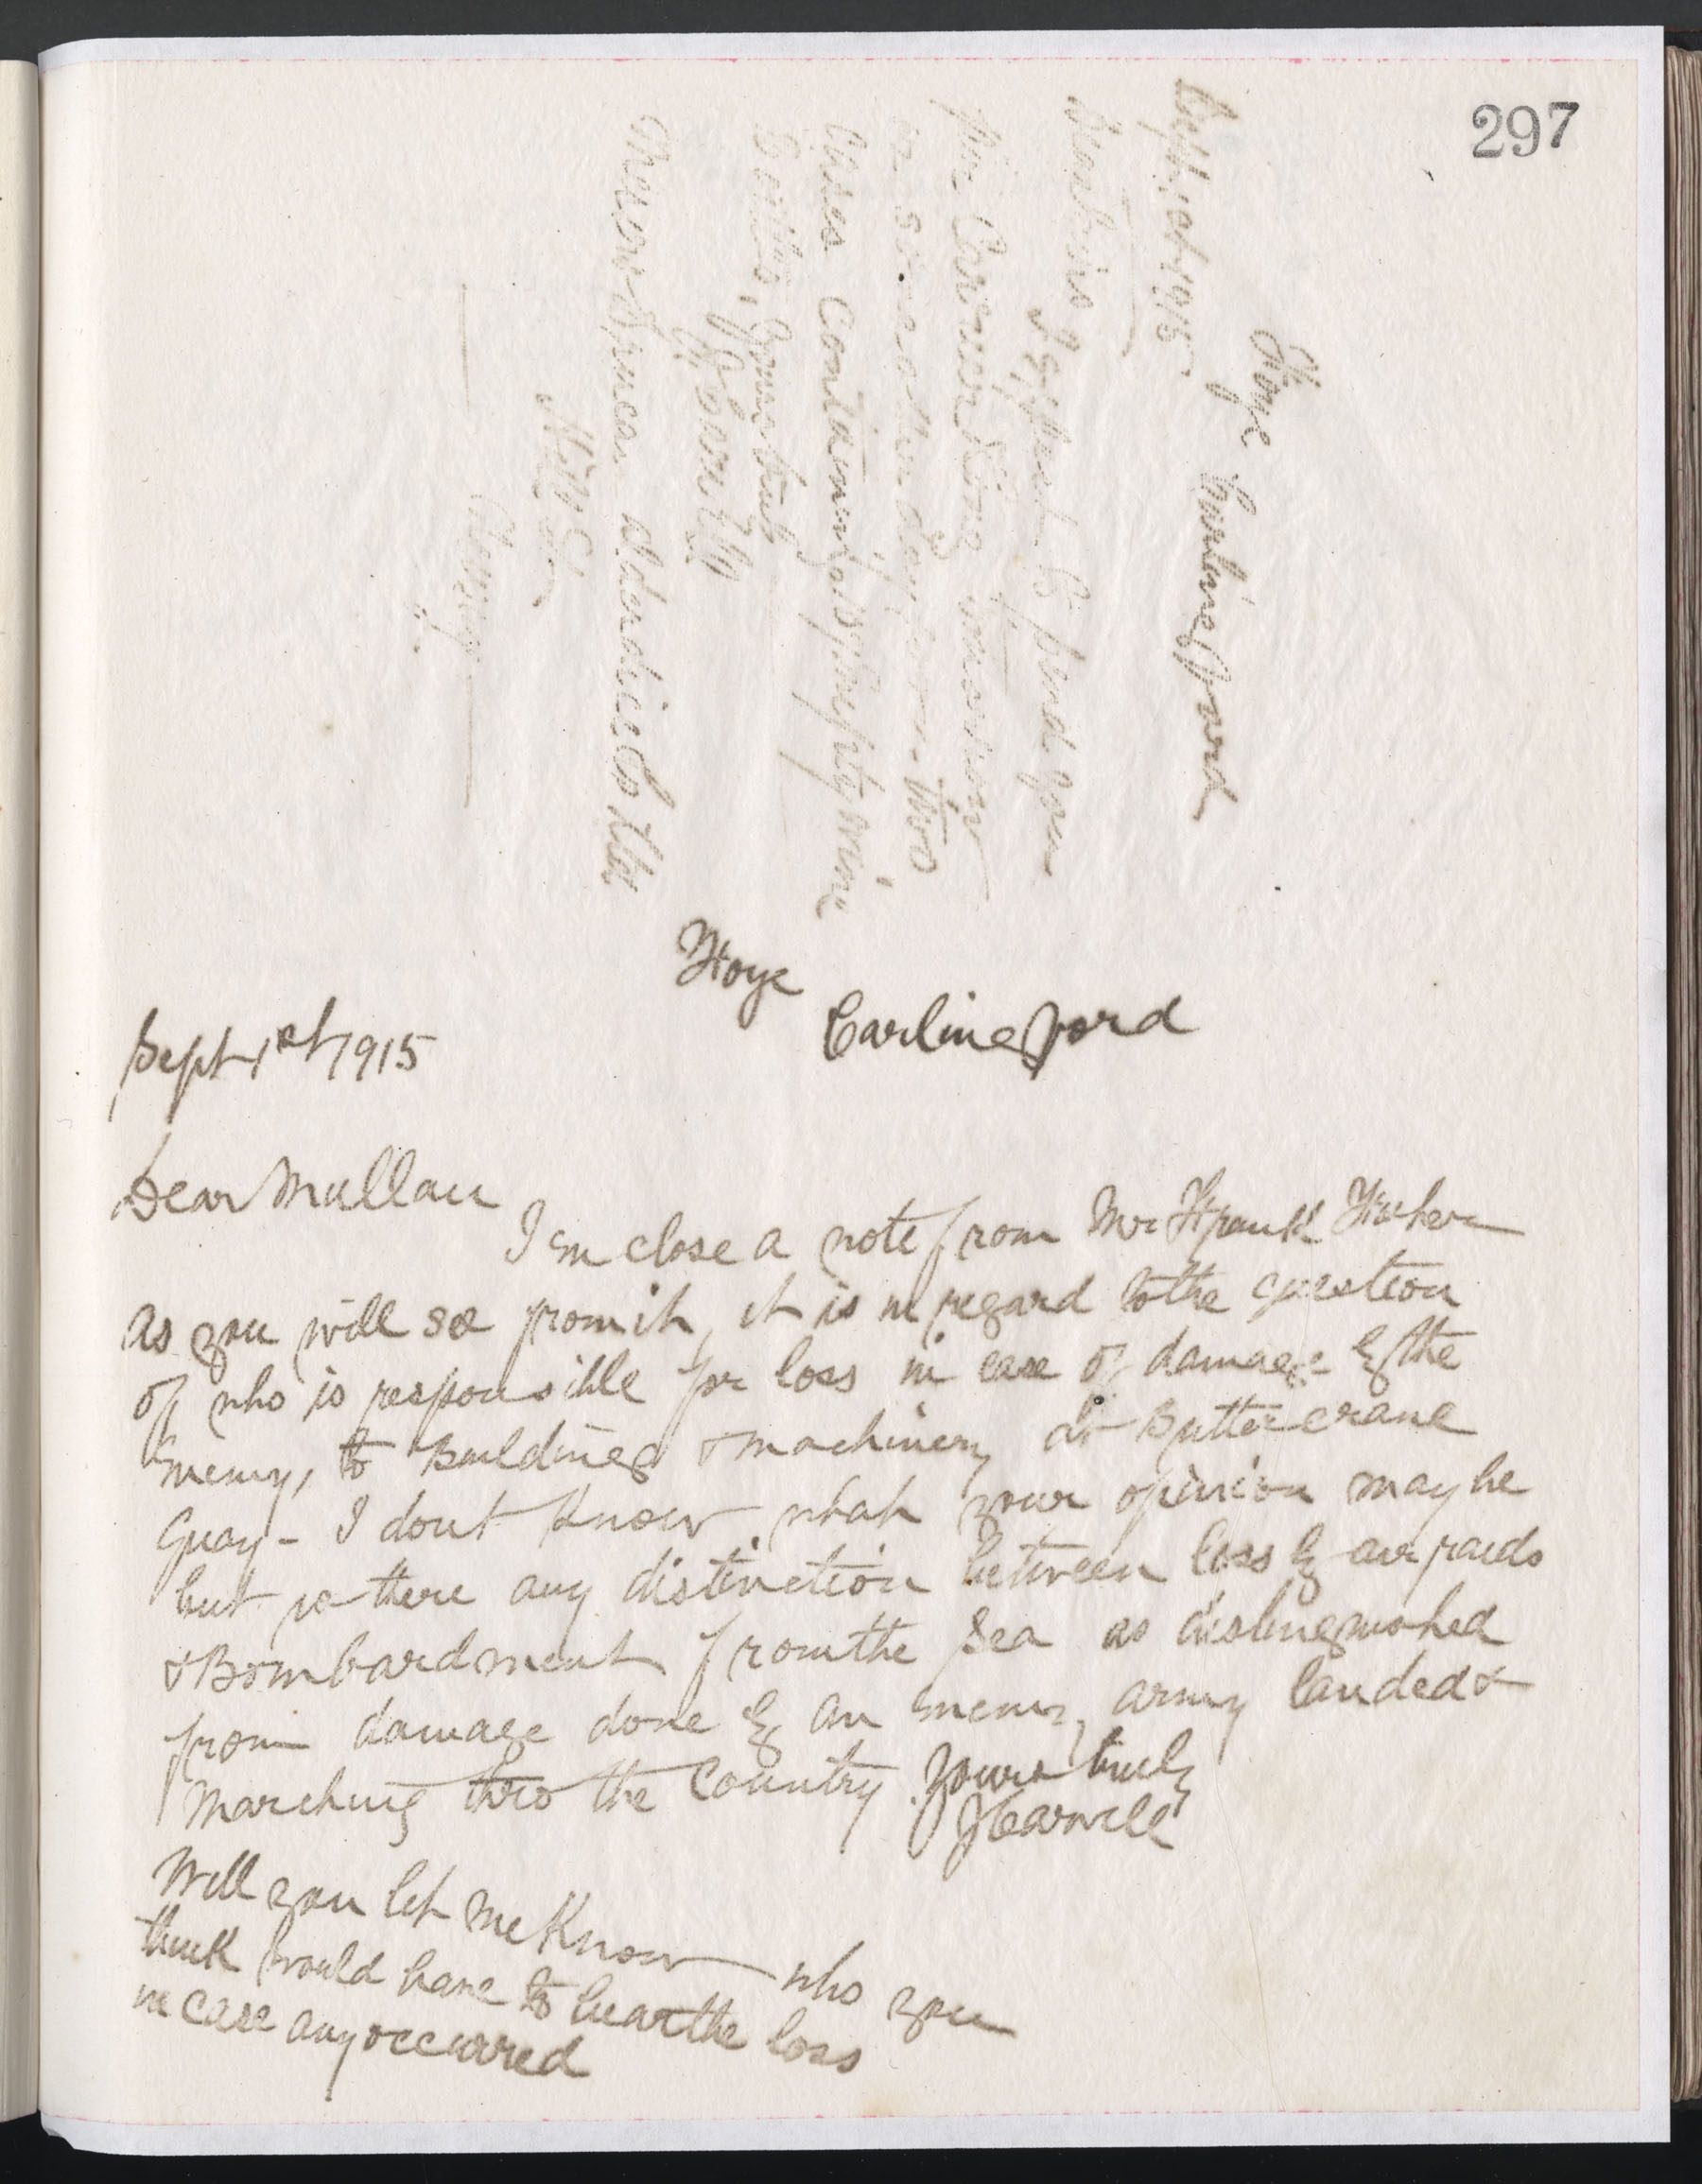 297
Hoye Carlingford
Sept 1st 1915
Dear Sirs
I expect to send you
per Carrier King tomorrow
or some other day soon two
cases containing 18 empty wine
Bottles, Yours truly
J Carvill
Messrs
Hoye
Carlingford
Sept 1st 1915
Dear Mullan
I enclose a note from Mr Frank Fisher
as you will see from it, it is in regard to the question
of who is responsible for loss in case of damage by the
Enemy, to Buildings & machinery at Buttercrane
Quay - I dont Know what your opinion may be
but is there any distinction between loss by air raids
& Bombardment from the Sea as distinguished
from damage done by an enemy army landed &
marching thro the Country. Yours truly
J Carvill
Will you let me Know who you
think would have to bear the loss
in case any occurred